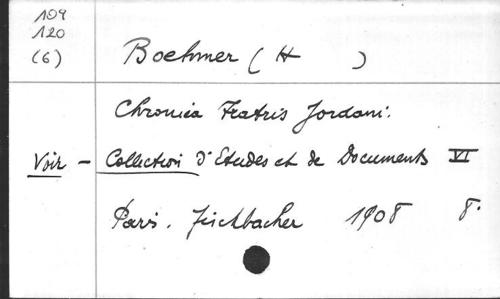 109
120
(6)
Boehmer (H )
Chronica Fratris Jordani.
Voir - Collection d'Etudes et de Documents VI
Paris. Fischbacher 1908 8°